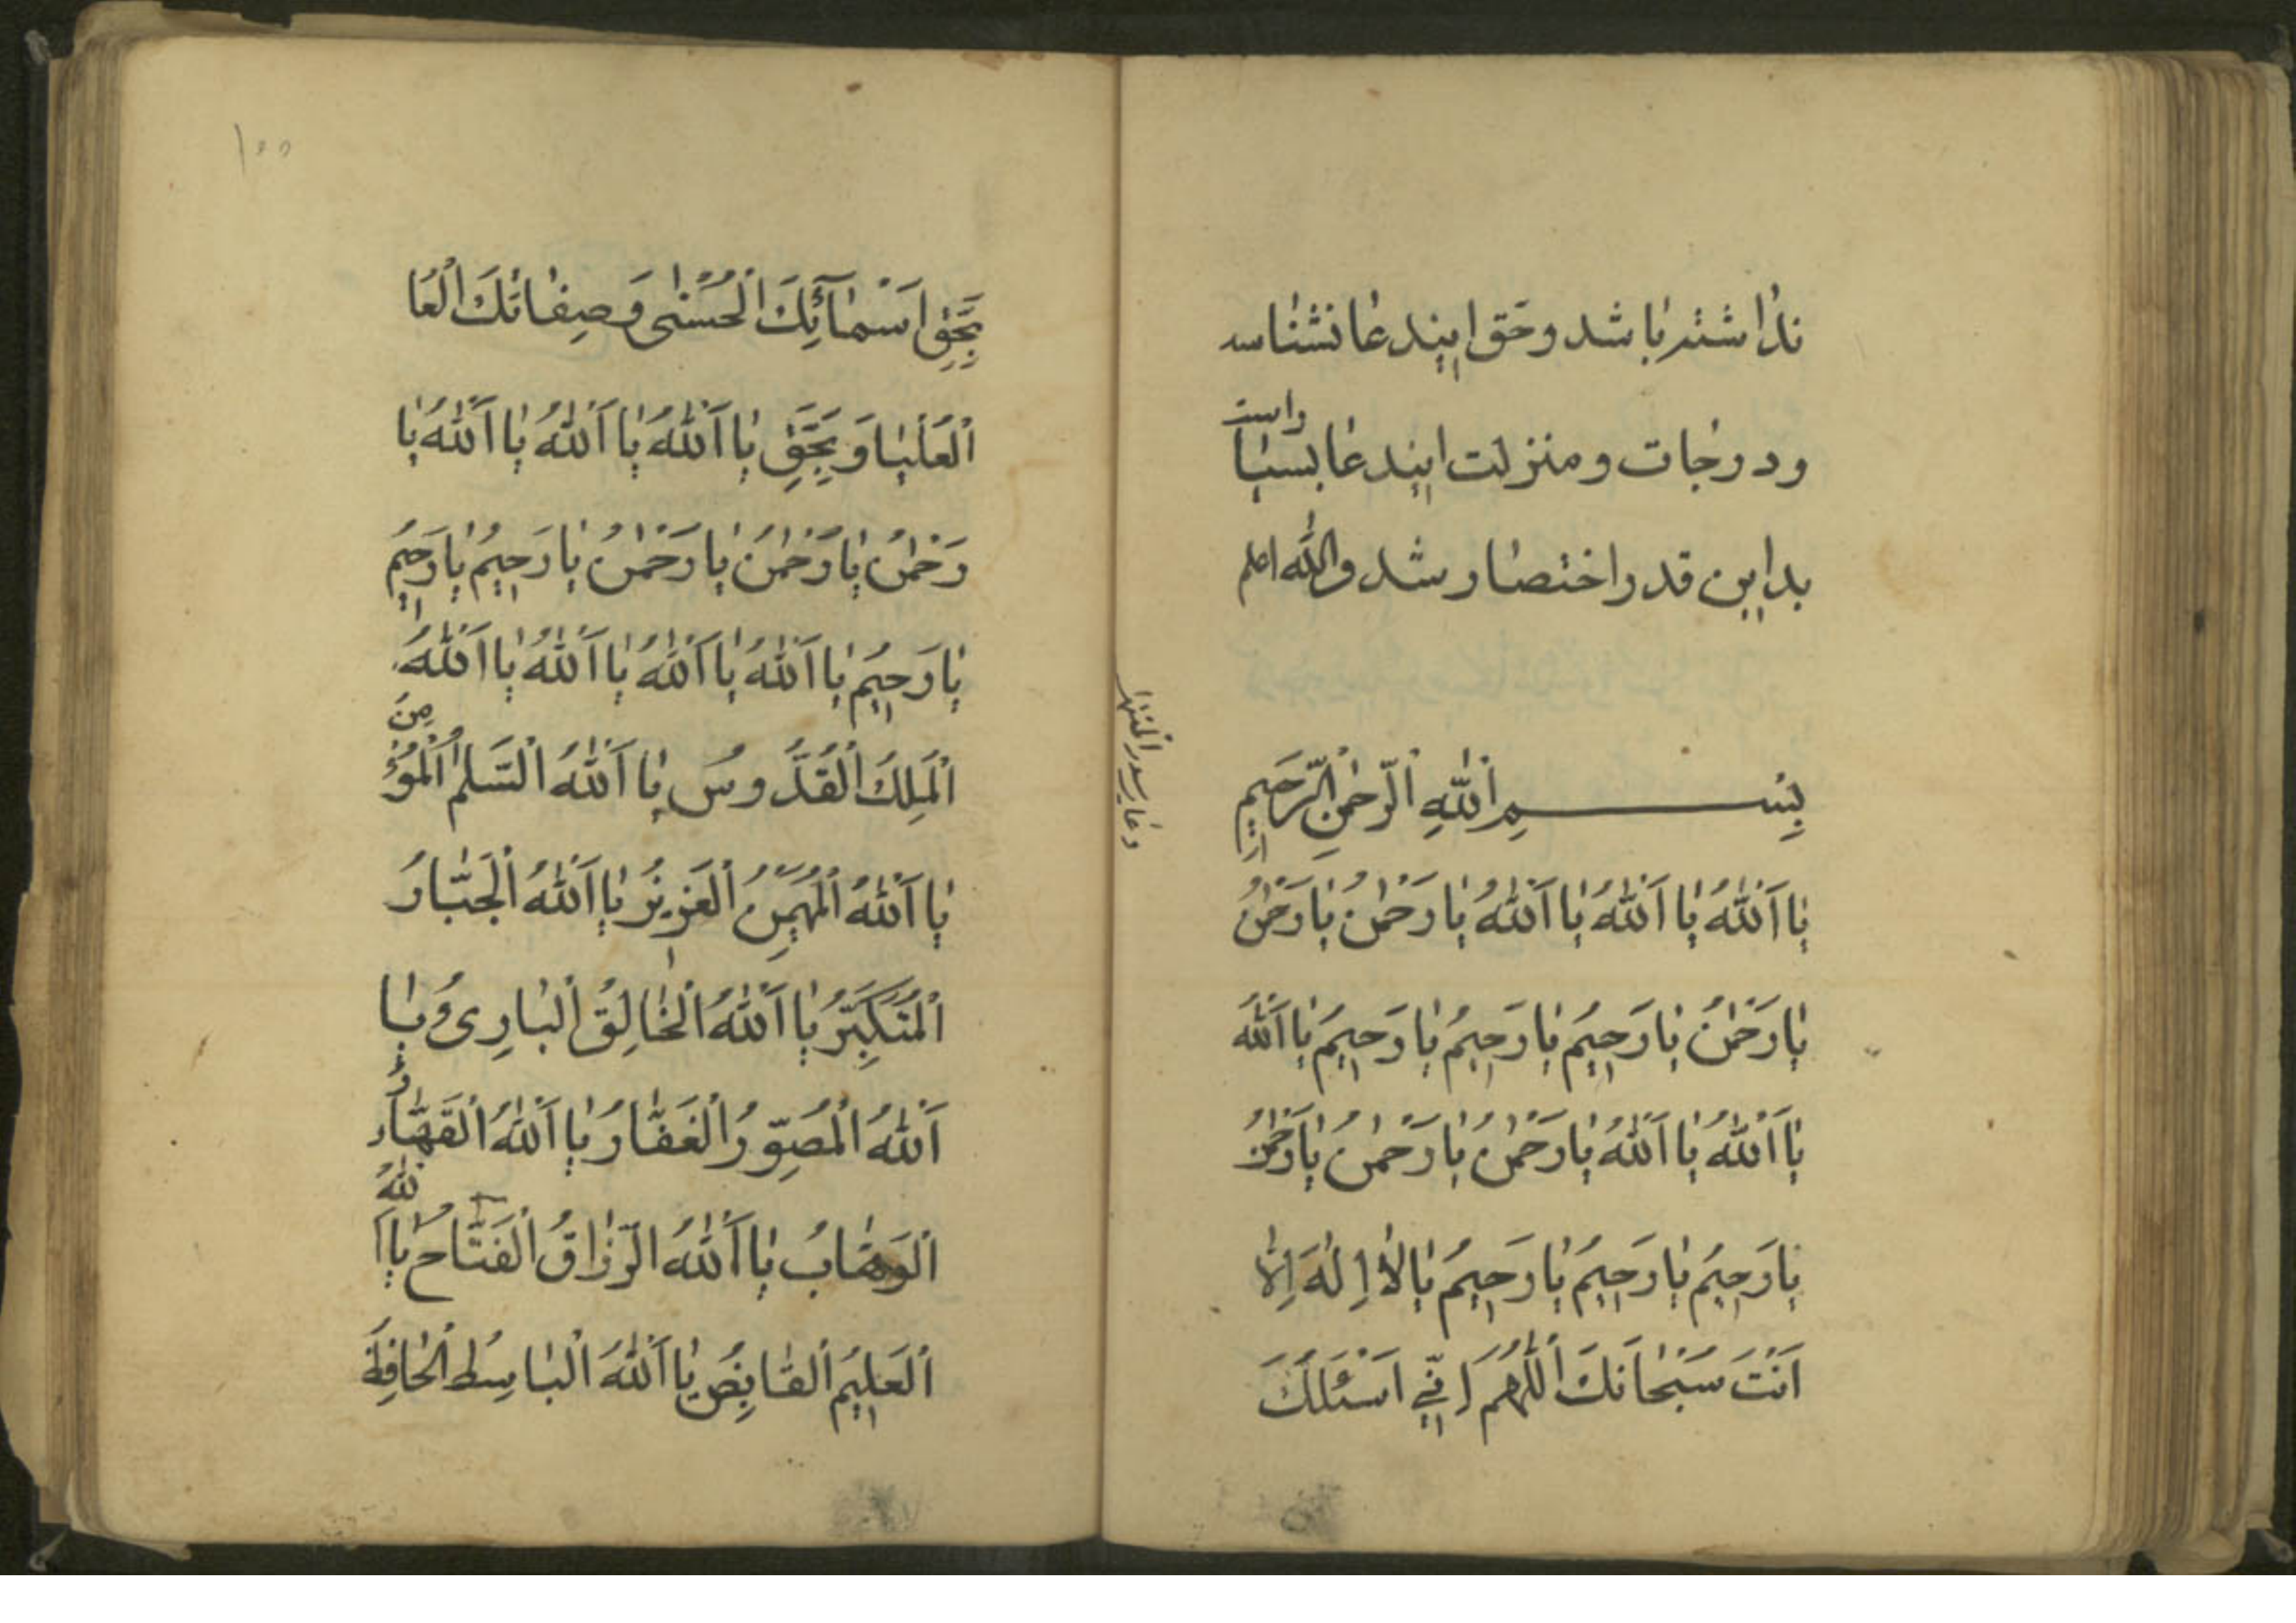 نداشته باشد و حق ایندعا نشناسد
ودرجات و منزلت ایندعا بسیار است
بداین قدر اختصار شد والله اعلم
بِسْمِ اللّٰهِ الرَّحْمٰنِ الرَّحِیمِ
یٰا اَللّٰهُ یٰا اَللّٰهُ یٰا اَللّٰهُ یٰا رَحْمٰنُ یٰا رَحْمٰنُ
یٰا رَحْمٰنُ یٰا رَحِیمُ یٰا رَحِیمُ یٰا رَحِیمُ یٰا اَللّٰهُ
یٰا اَللّٰهُ یٰا اَللّٰهُ یٰا رَحْمٰنُ یٰا رَحْمٰنُ یٰا رَحْمٰنُ
یٰا رَحِیمُ یٰا رَحِیمُ یٰا رَحِیمُ یٰا لٰا اِلٰهَ اِلّٰا
اَنْتَ سُبْحٰانَكَ اَللّٰهُمَّ اِنِّی اَسْئَلُكَ
دعاء
بِحَقِّ اَسْمٰآئِكَ الْحُسْنٰی وَ صِفٰاتِكَ الْعُا
اَلْعُلْیٰا وَ بِحَقِّ یٰا اَللّٰهُ یٰا اَللّٰهُ یٰا اَللّٰهُ یٰا
رَحْمٰنُ یٰا رَحْمٰنُ یٰا رَحْمٰنُ یٰا رَحِیمُ یٰا رَحِیمُ
یٰا رَحِیمُ یٰا اَللّٰهُ یٰا اَللّٰهُ یٰا اَللّٰهُ یٰا اَللّٰهُ
اَلْمَلِكُ الْقُدُّوسُ یٰا اَللّٰهُ السَّلٰمُ الْمُؤْمِنُ
یٰا اَللّٰهُ الْمُهَیْمِنُ الْعَزِیزُ یٰا اَللّٰهُ الْجَبّٰارُ
اَلْمُتَكَبِّرُ یٰا اَللّٰهُ الْخٰالِقُ الْبٰارِیءُ یٰا
اَللّٰهُ الْمُصَوِّرُ الْغَفّٰارُ یٰا اَللّٰهُ الْقَهّٰارُ
اَلْوَهّٰابُ یٰا اَللّٰهُ الرَّزّٰاقُ الْفَتّٰاحُ یٰا اَللّٰهُ
اَلْعَلِیمُ الْقٰابِضُ یٰا اَللّٰهُ الْبٰاسِطُ الْحٰافِظُ